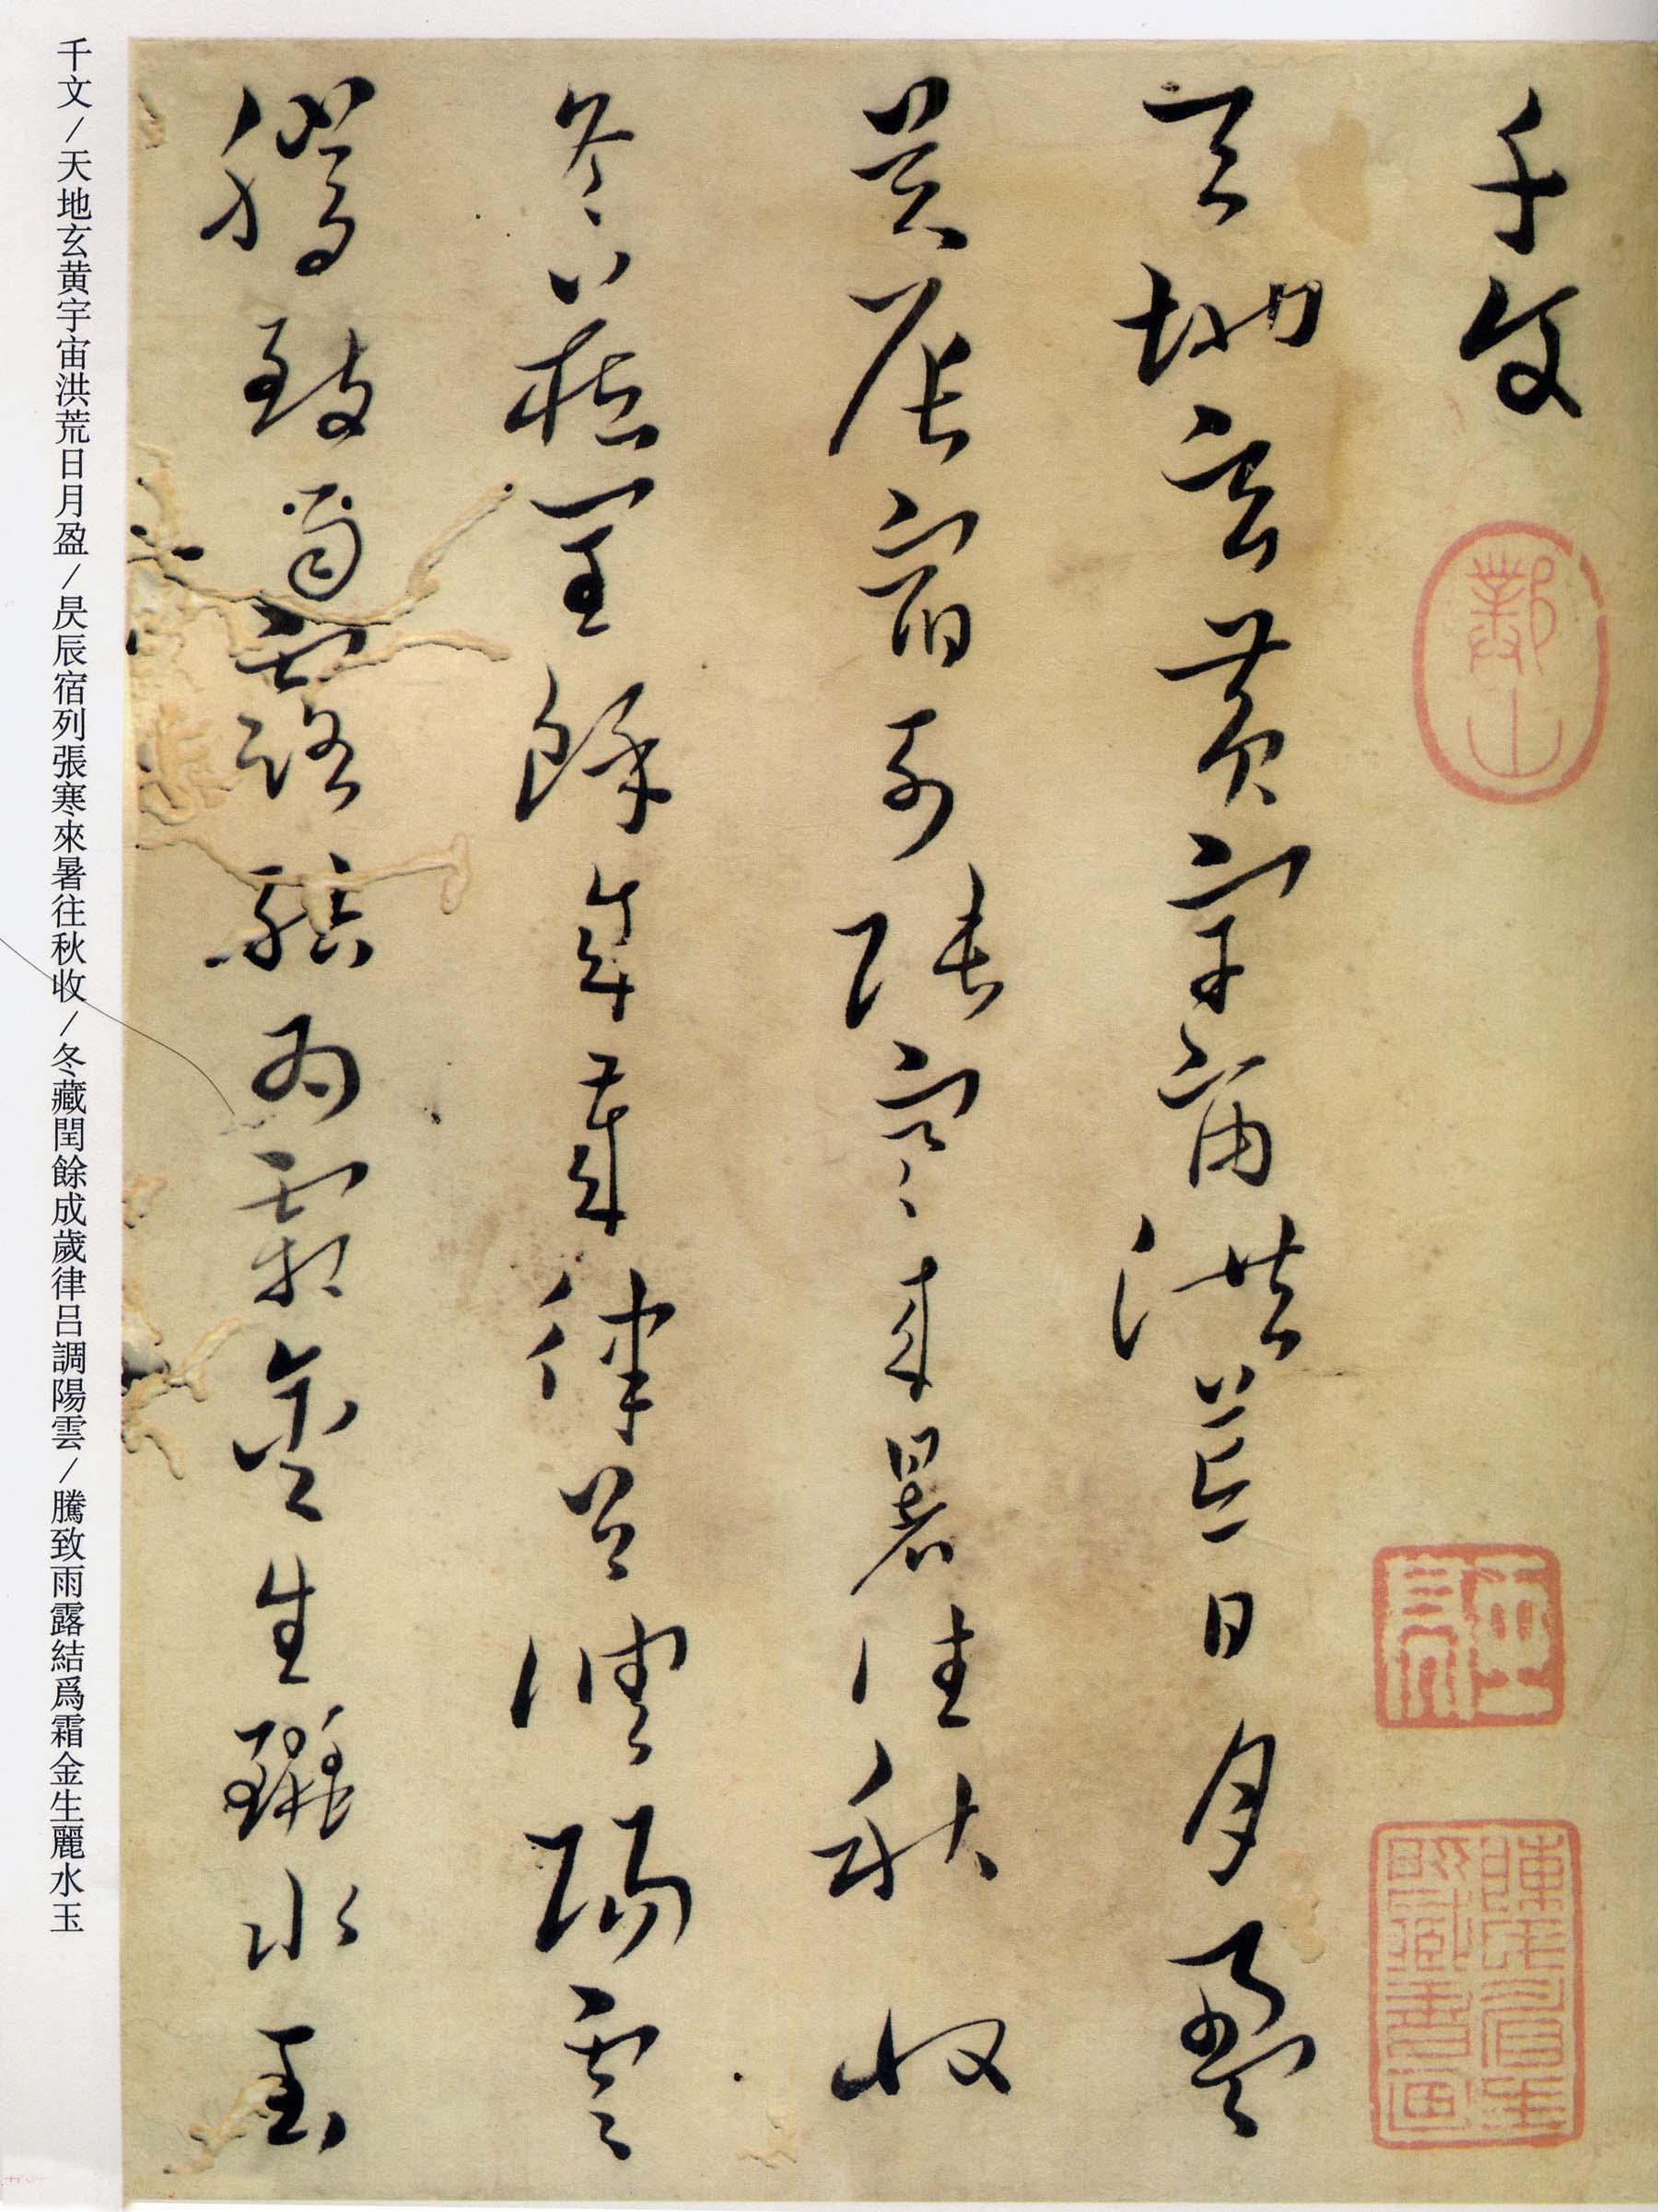 千文
天地玄黃宇宙洪荒日月盈
昃辰宿列張寒來暑往秋收
冬藏閏餘成歲律呂調陽雲
騰致雨露結為霜金生麗水玉
千文/天地玄黃宇宙洪荒日月盈/昃辰宿列張寒來暑往秋收/冬藏閏餘成歲律呂調陽雲/騰致雨露結爲霜金生麗水玉